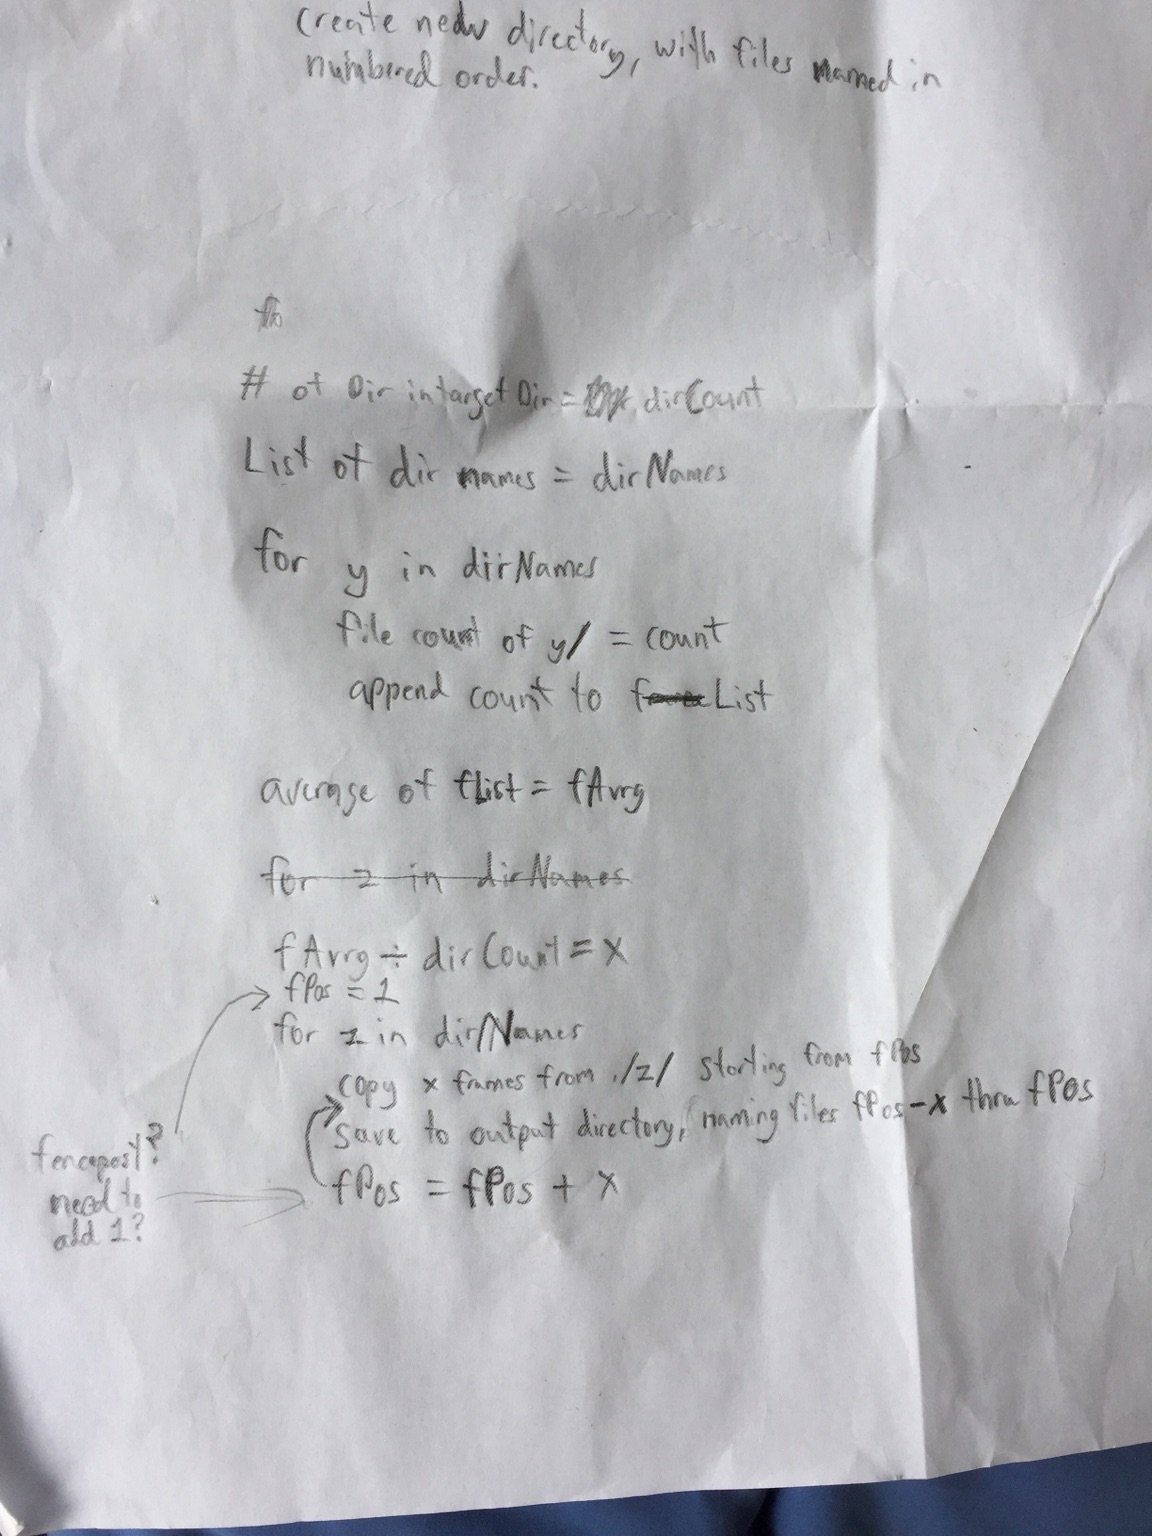 create new directory, with files named in
numbered order.
# of Dir in target Dir = dirCount
List of dir names = dirNames
for y in dirNames
file count of y/ = count
append count to fList
average of fList = fAvrg
for z in dirNames
fAvrg ÷ dirCount = x
fPos = 1
for z in dirNames
copy x frames from ./z/ starting from fPos
save to output directory, naming files fPos-x thru fPos
fPos = fPos + x
fencepost?
need to
add 1?